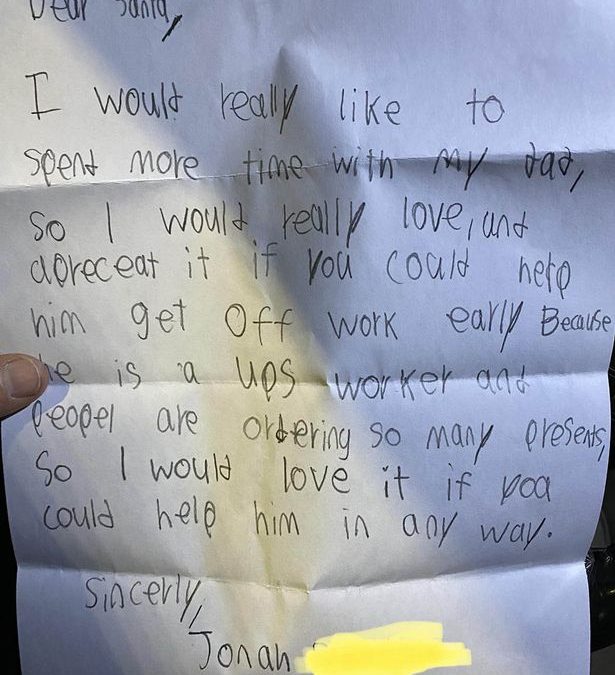 Dear Santa,
I would really like to
spent more time with my dad,
so I would really love, and
apreceat it if you could help
him get off work early Because
he is a ups worker and
peopel are ordering so many presents,
So I would love it if you
could help him in any way.
Sincerly,
Jonah